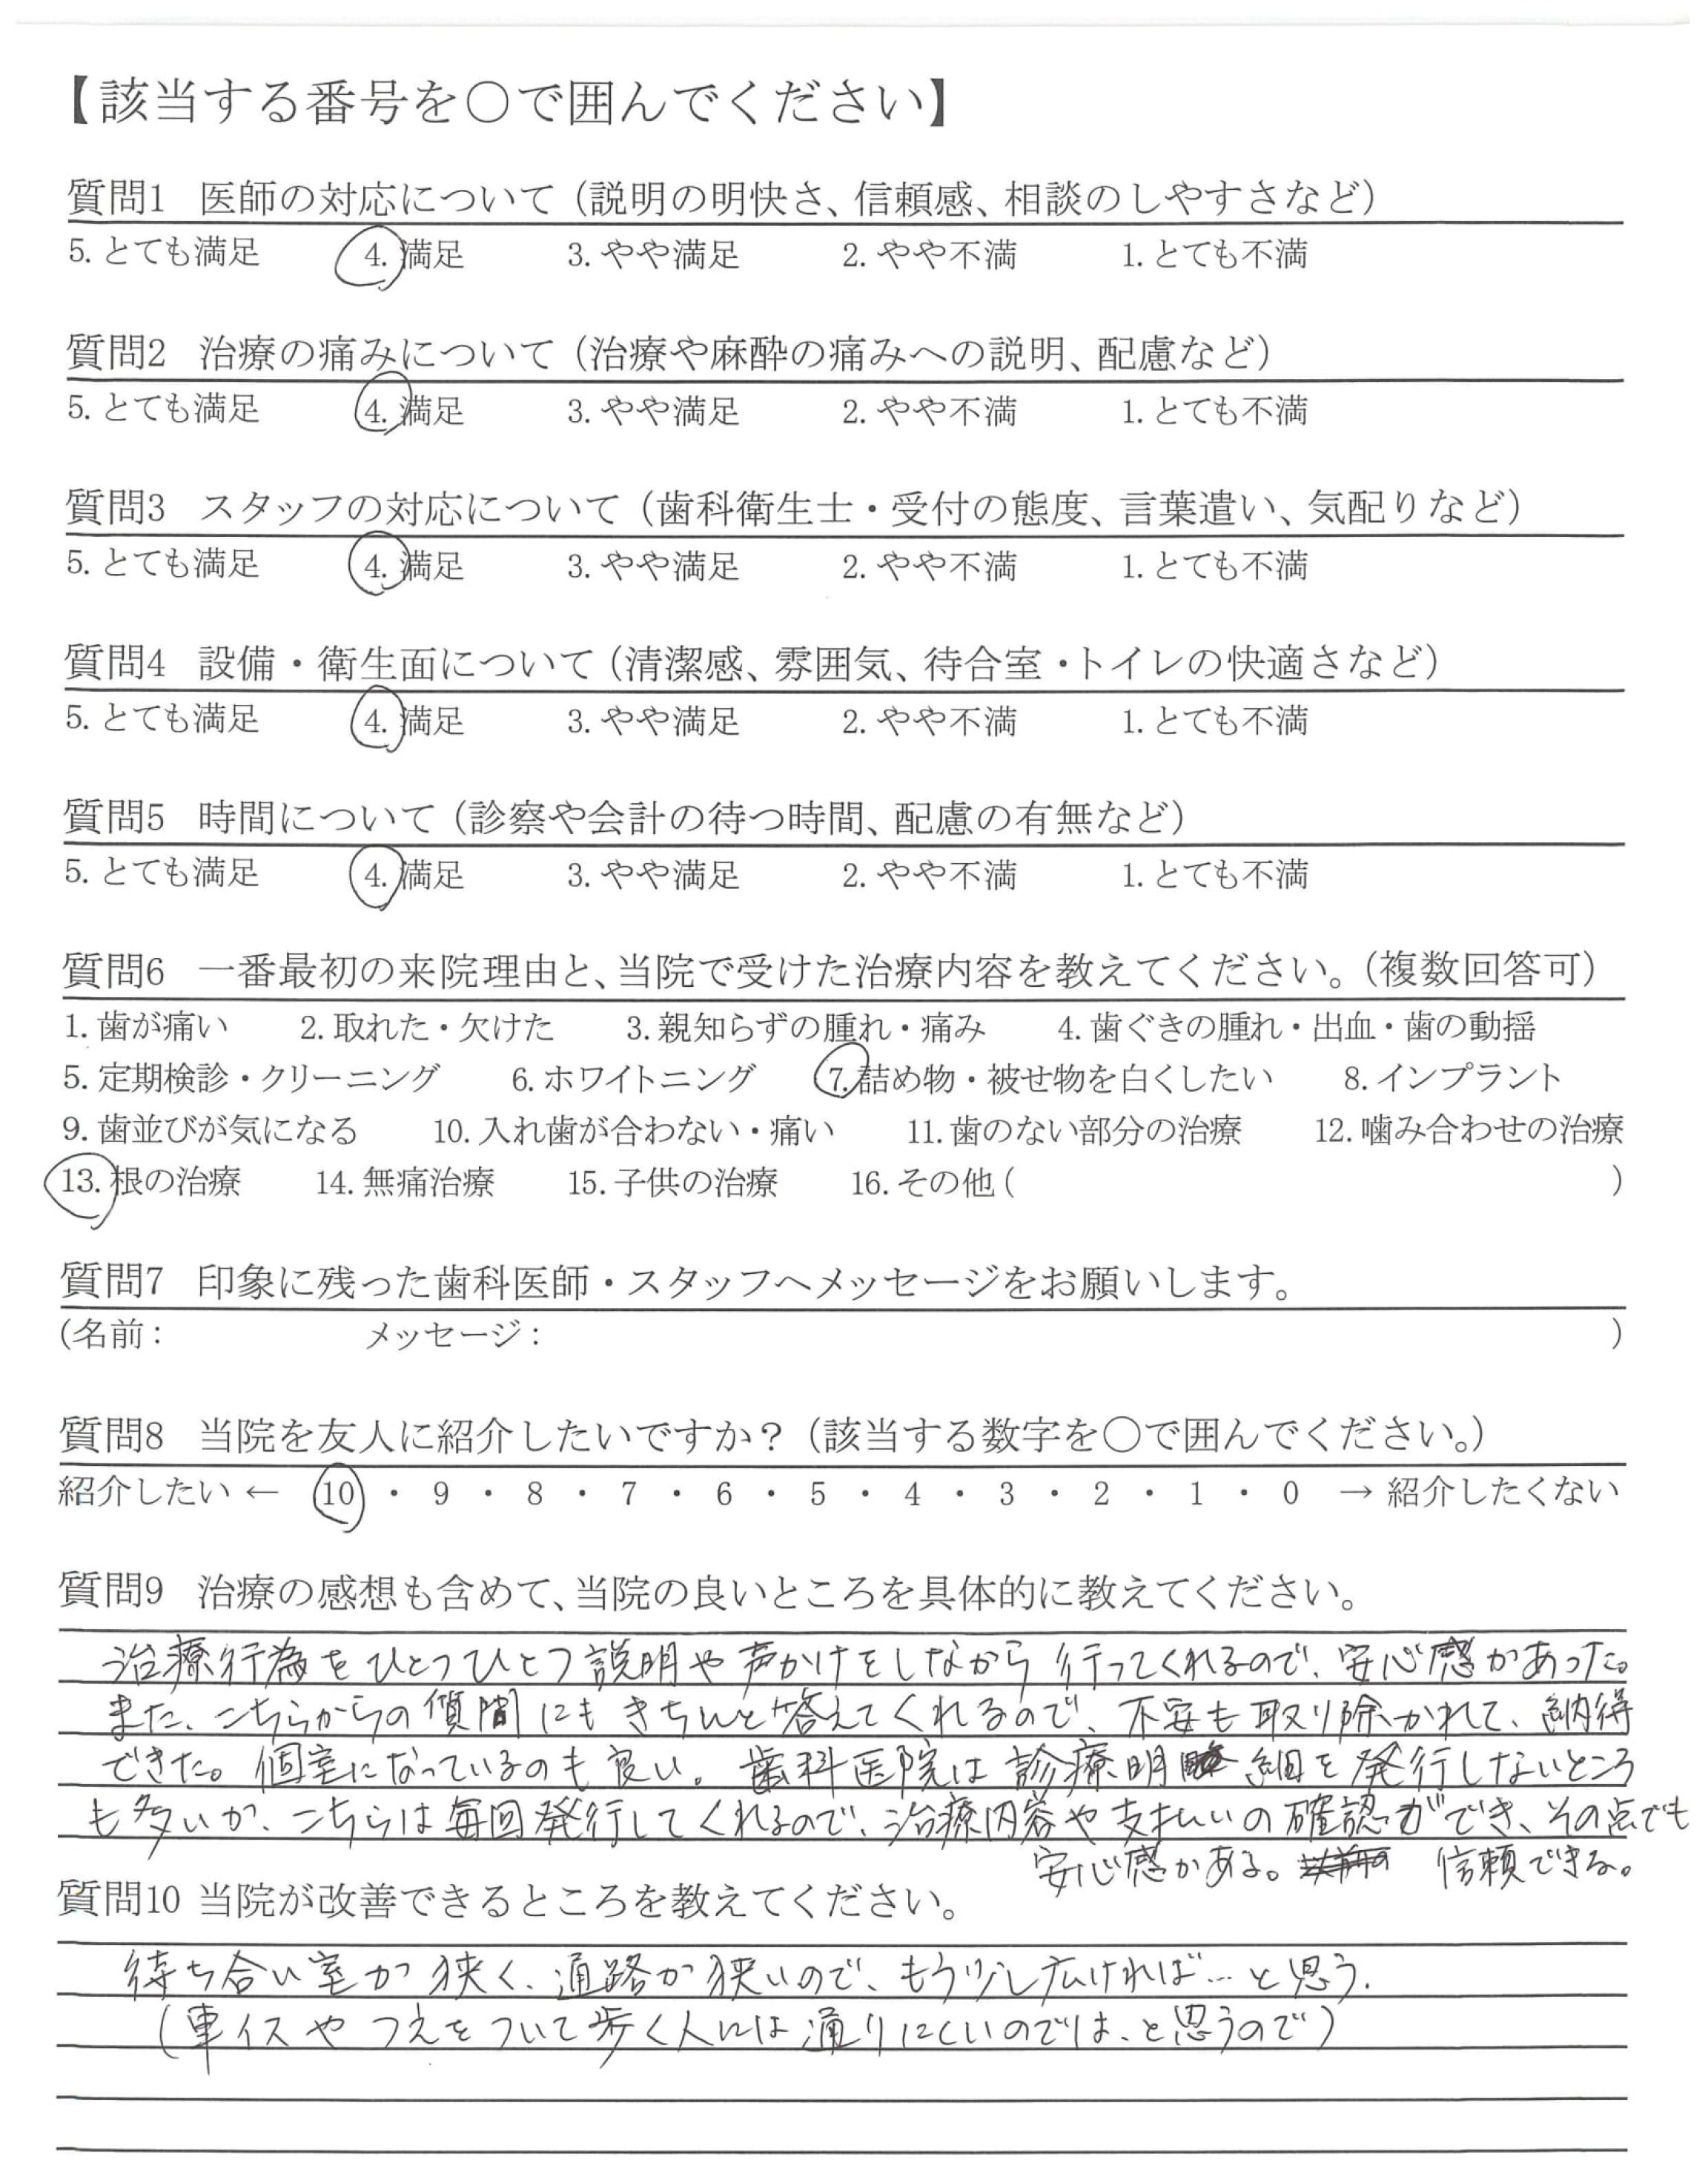 【該当する番号を○で囲んでください】
質問1 医師の対応について（説明の明快さ、信頼感、相談のしやすさなど）
5. とても満足 4. 満足 3. やや満足 2. やや不満 1. とても不満
質問2 治療の痛みについて（治療や麻酔の痛みへの説明、配慮など）
5. とても満足 4. 満足 3. やや満足 2. やや不満 1. とても不満
質問3 スタッフの対応について（歯科衛生士・受付の態度、言葉遣い、気配りなど）
5. とても満足 4. 満足 3. やや満足 2. やや不満 1. とても不満
質問4 設備・衛生面について（清潔感、雰囲気、待合室・トイレの快適さなど）
5. とても満足 4. 満足 3. やや満足 2. やや不満 1. とても不満
質問5 時間について（診察や会計の待つ時間、配慮の有無など）
5. とても満足 4. 満足 3. やや満足 2. やや不満 1. とても不満
質問6 一番最初の来院理由と、当院で受けた治療内容を教えてください。（複数回答可）
1. 歯が痛い 2. 取れた・欠けた 3. 親知らずの腫れ・痛み 4. 歯ぐきの腫れ・出血・歯の動揺
5. 定期検診・クリーニング 6. ホワイトニング 7. 詰め物・被せ物を白くしたい 8. インプラント
9. 歯並びが気になる 10. 入れ歯が合わない・痛い 11. 歯のない部分の治療 12. 噛み合わせの治療
13. 根の治療 14. 無痛治療 15. 子供の治療 16. その他 ( )
質問7 印象に残った歯科医師・スタッフへメッセージをお願いします。
(名前： メッセージ： )
質問8 当院を友人に紹介したいですか？（該当する数字を○で囲んでください。）
紹介したい ← 10 ・ 9 ・ 8 ・ 7 ・ 6 ・ 5 ・ 4 ・ 3 ・ 2 ・ 1 ・ 0 → 紹介したくない
質問9 治療の感想も含めて、当院の良いところを具体的に教えてください。
治療行為をひとつひとつ説明や声かけをしながら行ってくれるので、安心感があった。
また、こちらからの質問にもきちんと答えてくれるので、不安も取り除かれて、納得
できた。個室になっているのも良い。歯科医院は診療明細を発行しないところ
も多いが、こちらは毎回発行してくれるので、治療内容や支払いの確認ができ、その点でも
安心感がある。信頼できる。
質問10 当院が改善できるところを教えてください。
待ち合い室が狭く、通路が狭いので、もう少し広ければ…と思う.
(車イスやつえをついて歩く人には通りにくいのでは、と思うので)